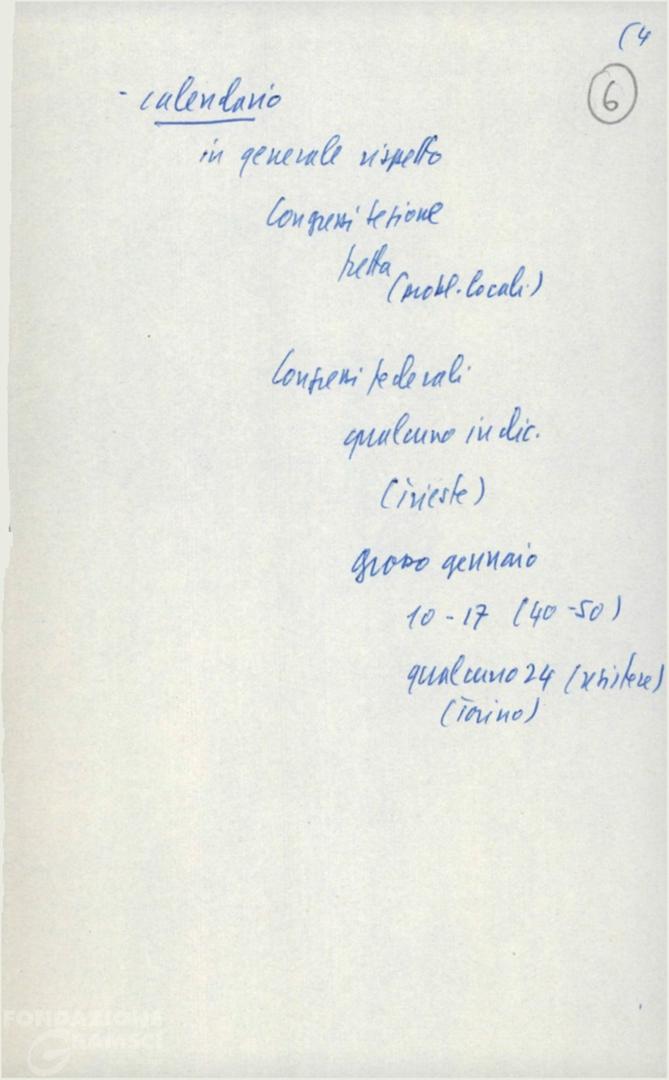 (4
6
- calendario
in generale rispetto
Congressi sezione
fretta
(probl. locali)
Congressi federali
qualcuno in dic.
(Trieste)
grosso gennaio
10-17 (40-50)
qualcuno 24 (resistere)
(Torino)
FONDAZIONE
GRAMSCI